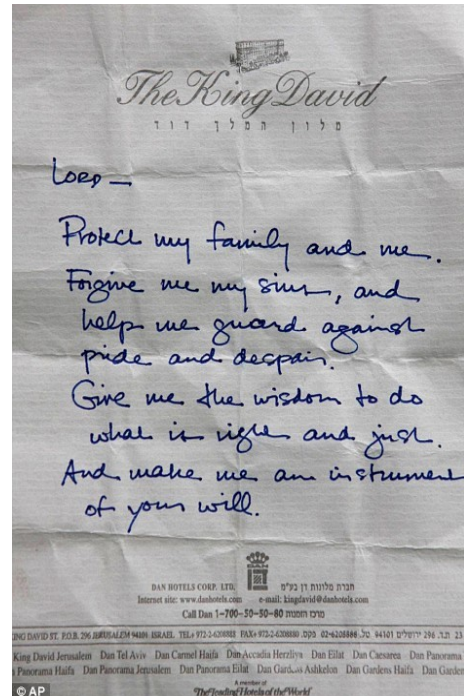 The King David
מלון המלך דוד
LORD —
Protect my family and me.
Forgive me my sins, and
help me guard against
pride and despair.
Give me the wisdom to do
what is right and just.
And make me an instrument
of your will.
DAN
DAN HOTELS CORP. LTD. חברת מלונות דן בע"מ
Internet site: www.danhotels.com e-mail: kingdavid@danhotels.com
Call Dan 1-700-50-50-80 מרכז הזמנות
KING DAVID ST. P.O.B. 296 JERUSALEM 94101 ISRAEL. TEL. 972-2-6208888 FAX. 972-2-6208880 פקס. 02-6208888 טל. 94101 ירושלים 296 ת.ד. 23
King David Jerusalem Dan Tel Aviv Dan Carmel Haifa Dan Accadia Herzliya Dan Eilat Dan Caesarea Dan Panorama
Panorama Haifa Dan Panorama Jerusalem Dan Panorama Eilat Dan Gardens Ashkelon Dan Gardens Haifa Dan Garden
A member of
The Leading Hotels of the World
© AP